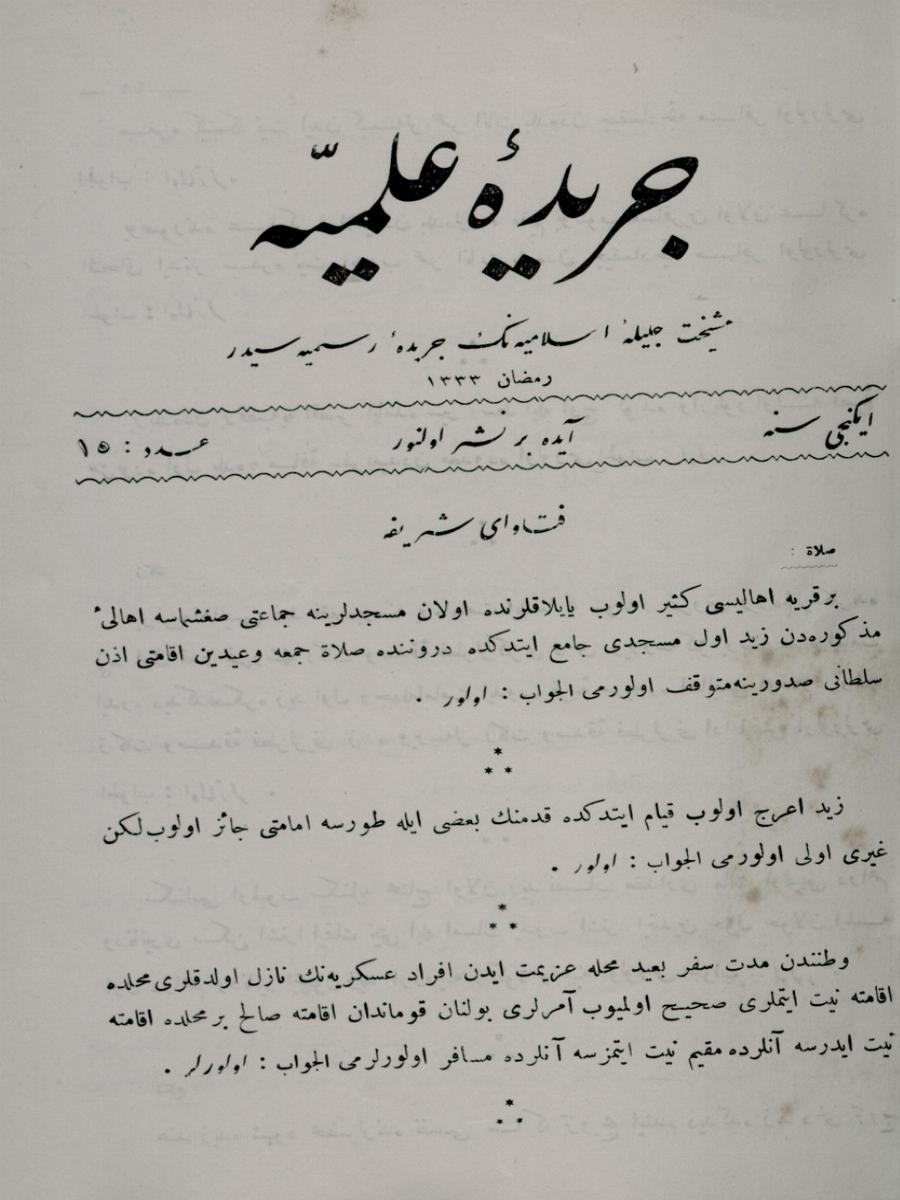 جريدۀ علميّه
مشيخت جليلۀ اسلاميه‌نك جريدۀ رسميه‌سيدر
رمضان ١٣٣٣
ايكنجى سنه
آيده بر نشر اولنور
عدد : ١٥
فتاواى شريفه
صلاة :
بر قريه اهاليسى كثير اولوب يايلاقلرنده اولان مسجدلرينه جماعتى صغشماسه اهالئ
مذكوره‌دن زيد اول مسجدى جامع ايتدكده دروننده صلاة جمعه وعيدين اقامتى اذن
سلطانى صدورينه متوقف اولورمى الجواب : اولور .
*
* *
زيد اعرج اولوب قيام ايتدكده قدمنك بعضى ايله طورسه امامتى جائز اولوب لكن
غيرى اولى اولورمى الجواب : اولور .
*
* *
وطنندن مدت سفر بعيد محله عزيمت ايدن افراد عسكريه‌نك نازل اولدقلرى محلده
اقامته نيت ايتملرى صحيح اولميوب آمرلرى بولنان قوماندان اقامته صالح بر محلده اقامته
نيت ايدرسه آنلرده مقيم نيت ايتمزسه آنلرده مسافر اولورلرمى الجواب : اولورلر .
*
* *